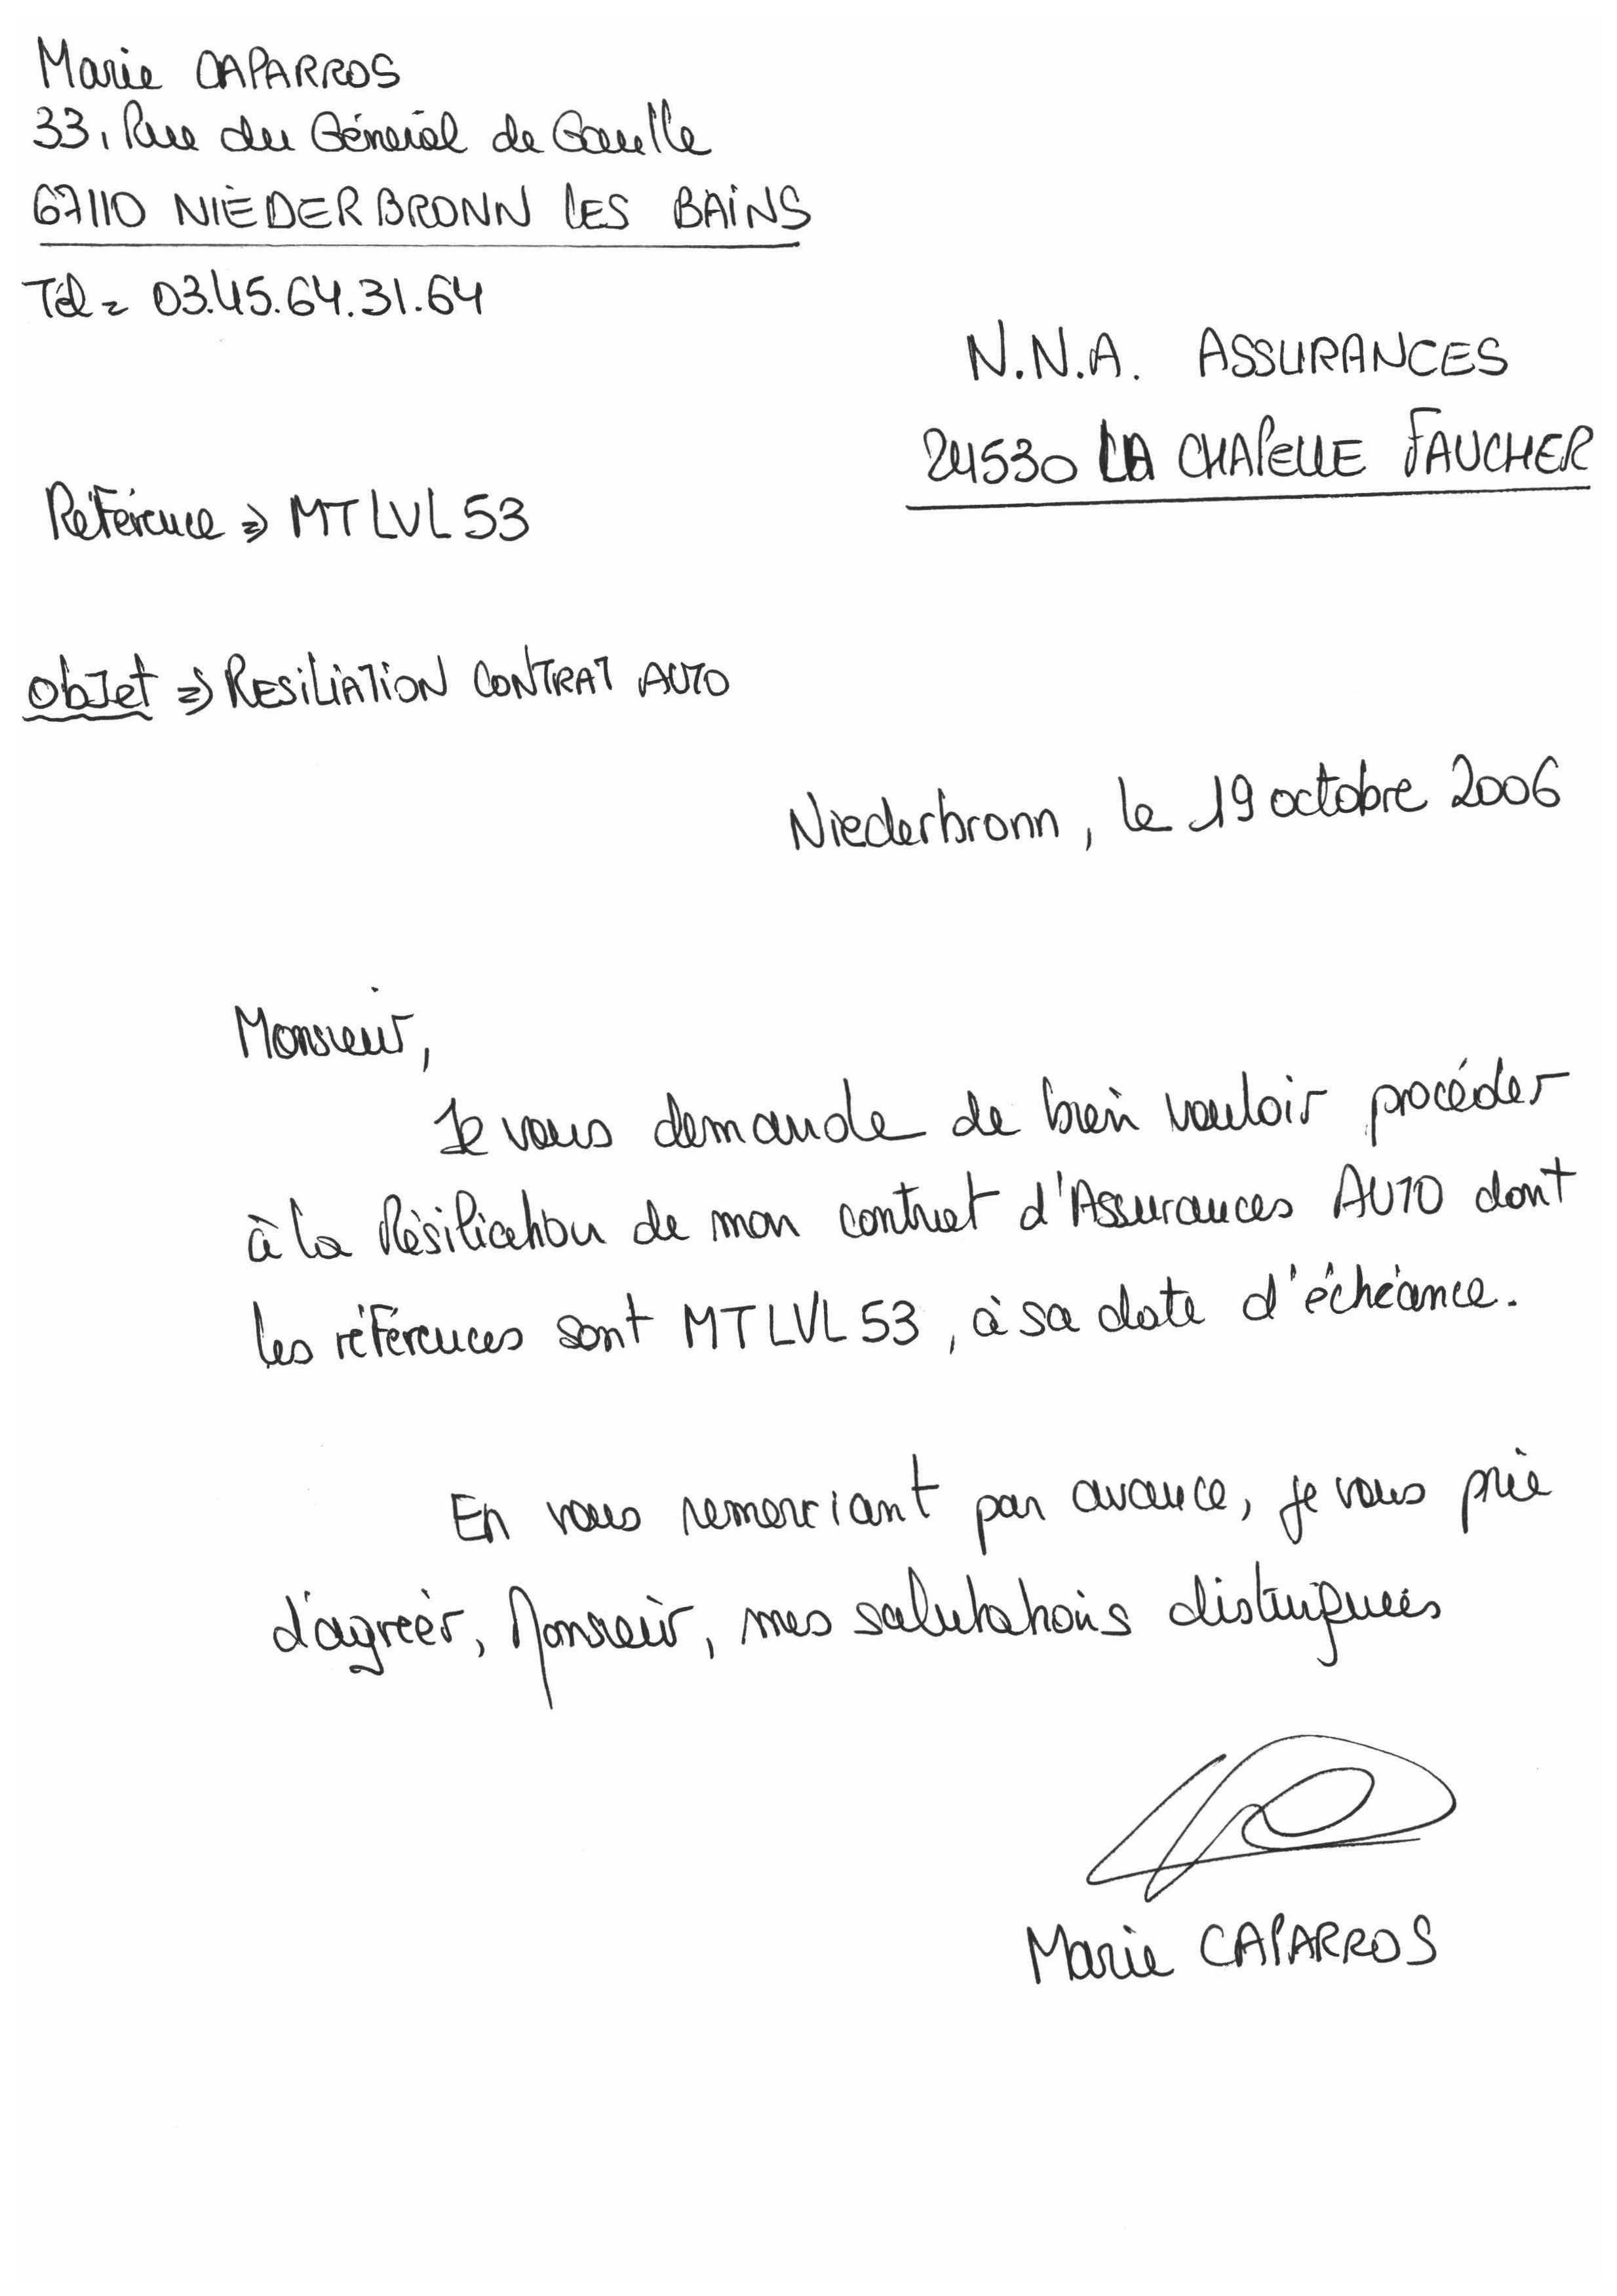 Marie CAPARROS
33, Rue du Général de Gaulle
67110 NIEDERBRONN LES BAINS
Tél = 03.45.64.31.64
N.N.A. ASSURANCES
24530 LA CHAPELLE FAUCHER
Référence => MTLVL53
Objet => RESILIATION CONTRAT AUTO
Niederbronn, le 19 octobre 2006
Monsieur,
Je vous demande de bien vouloir procéder
à la Résiliation de mon contrat d'Assurances AUTO dont
les références sont MTLVL53, à sa date d'échéance.
En vous remerciant par avance, je vous prie
d'agréer, Monsieur, mes salutations distinguées
Marie CAPARROS